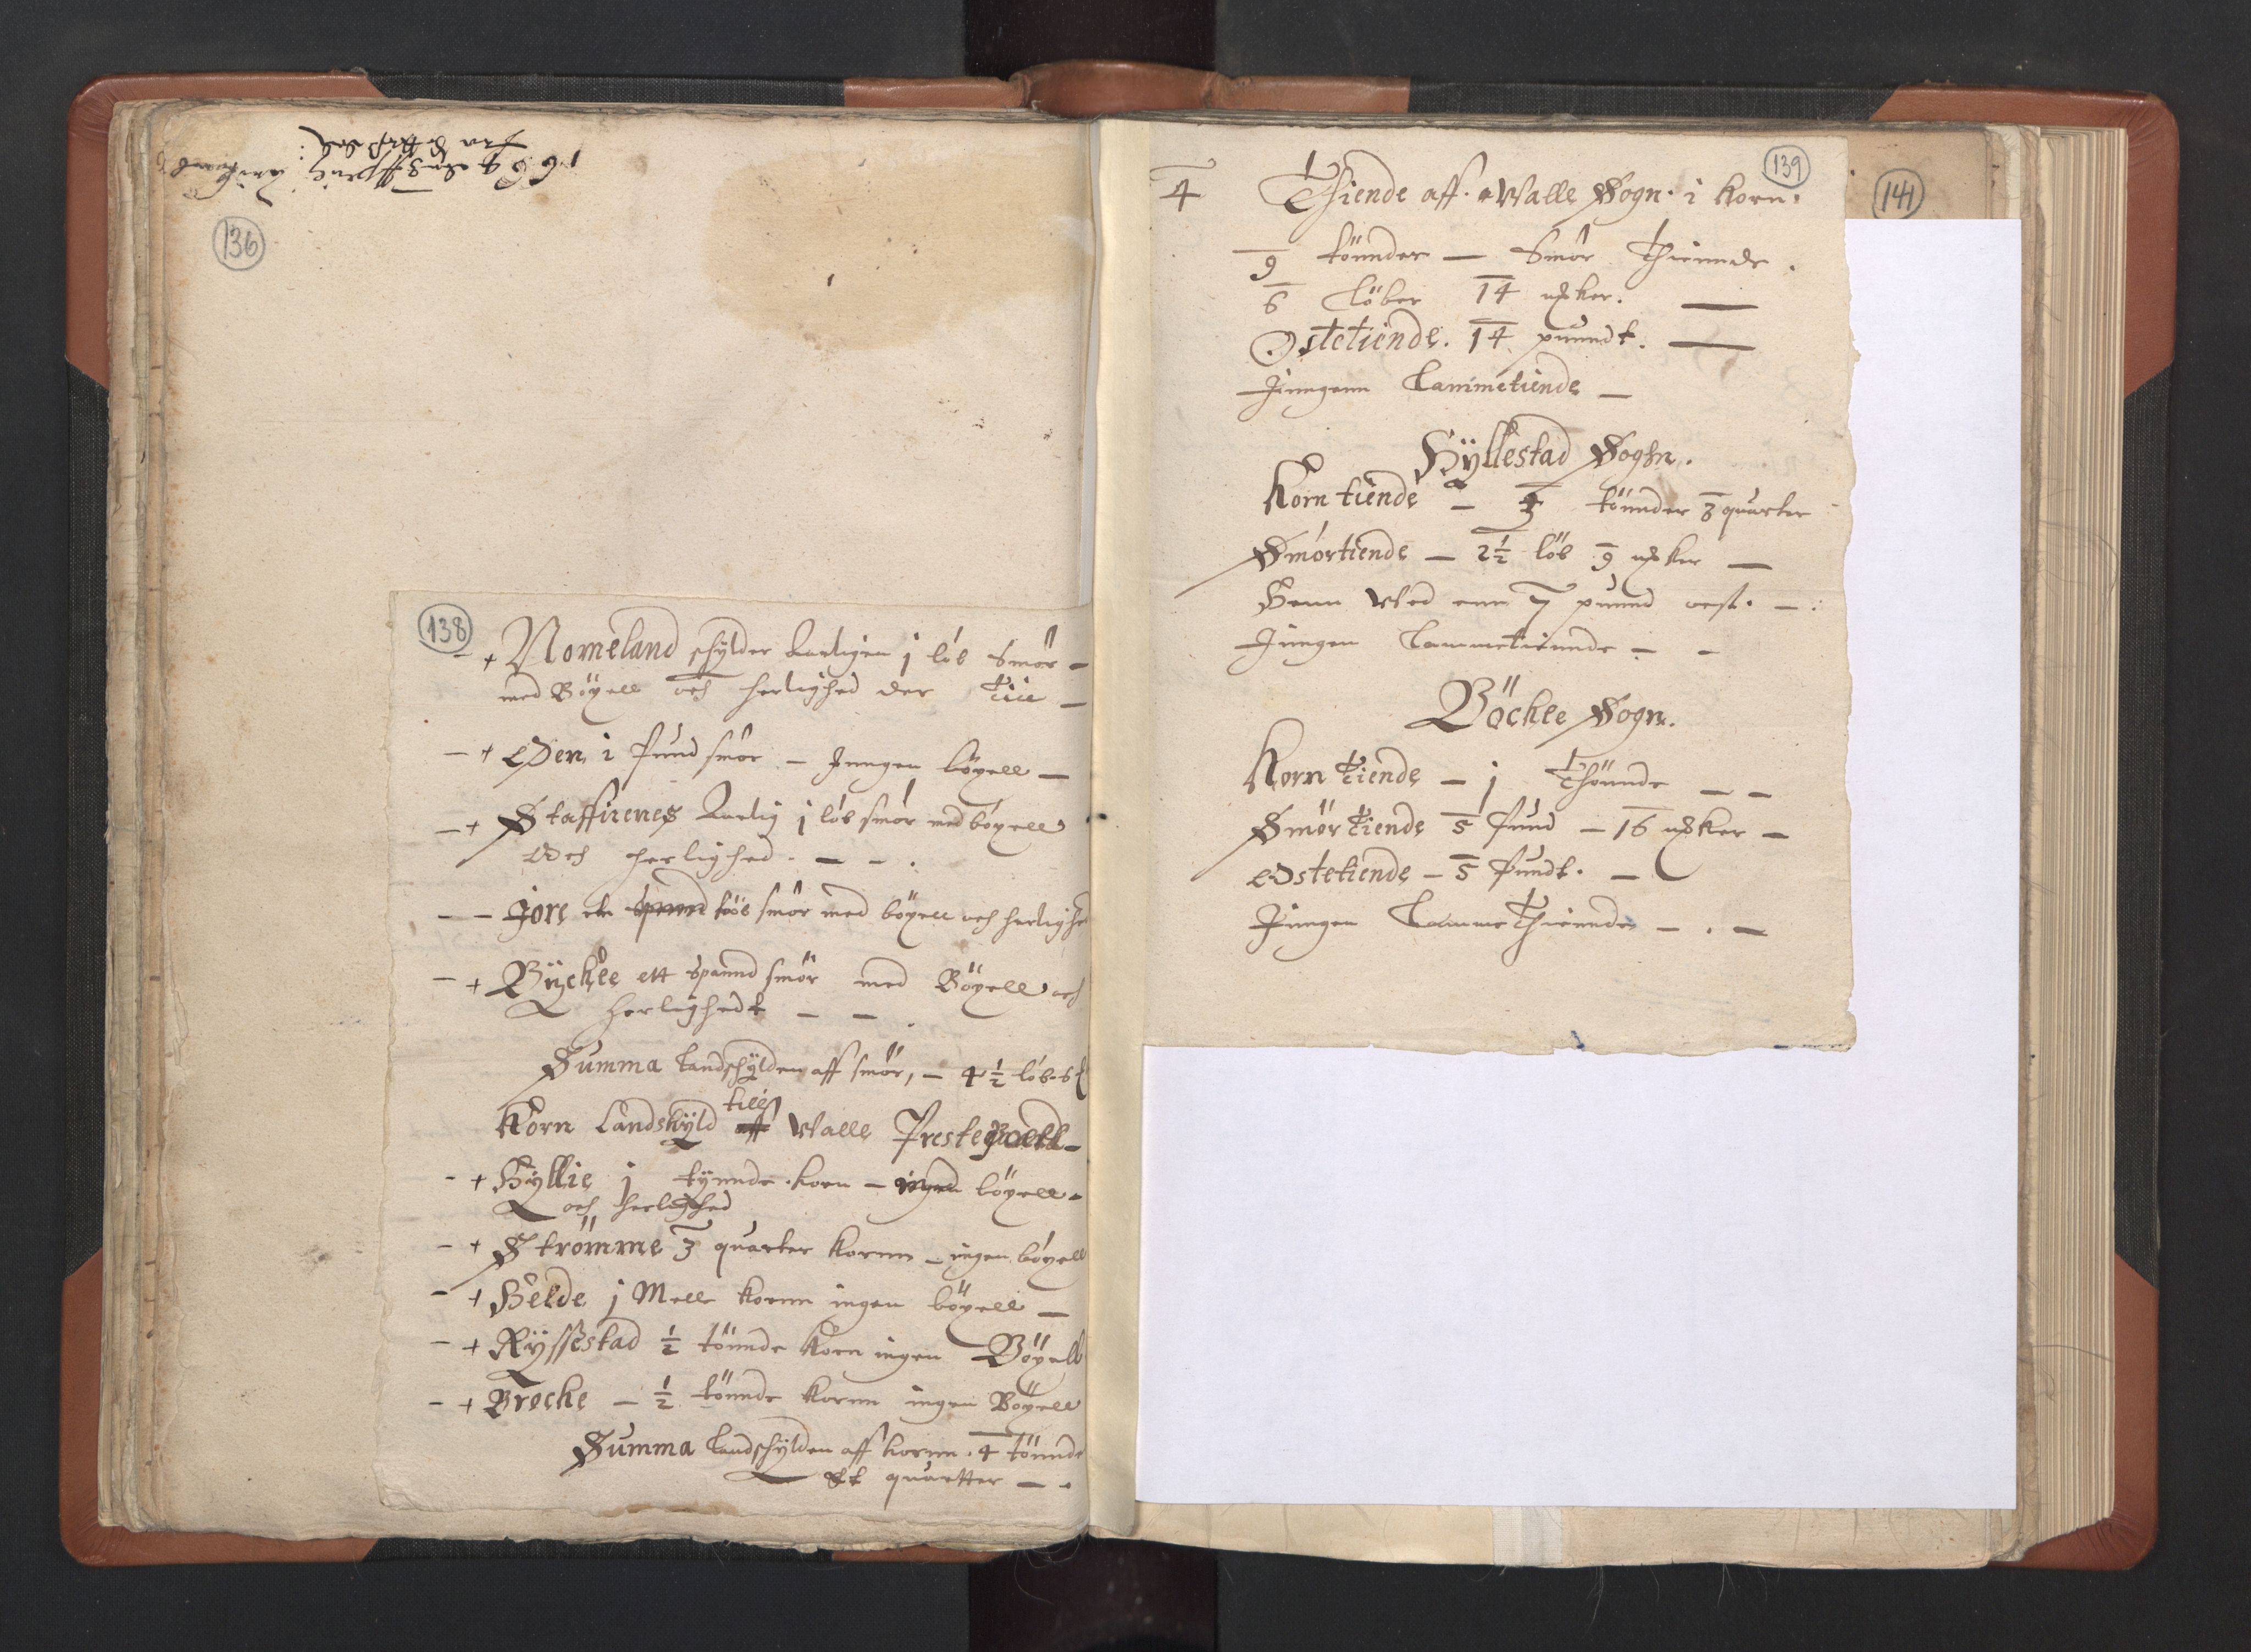 136
138
+ Nomeland schÿlder Aarligen j löb Smör –
med Böxell och herlighed der Till –
– + Øen i Pund smör – Inngen böxell –
– + Staffirenes Aarlig j löb smör med böxell
Och herlighed. – – .
– – Jore et Spannd löb smör med böxell och herlighed
– + Bÿcklle ett Spannd smör med Böxell och
herlighedt – – .
Summa Landschÿlden aff smör, – 4½ löb
Korn Landskÿld till aff Walle Prestegaardt –
– + Hÿllie j tÿnnde korn – ingen böxell –
och herlighed
– + Strömme 3 quarter kornn – ingen böxell
– + Helde j Mell kornn ingen böxell –
– + Rÿssestad ½ tönnde korn ingen Böxell
– + Brocke – ½ tönnde kornn ingen Böxell
Summa Landschÿlden aff kornn. 4 tönnde
et quartter – .
139
141
4 Thiende aff. Walle Sogn. i Korn.
9 tönnder – Smör Thiennde.
6 Löber 14 mker. –
Ostetiende. 14 punndt. –
Inngenn Lammetiende –
Hÿllestad Soghn.
Korn tiende – tönnder 3 quarter
Smörtiende – 2½ löb 9 mker –
Henn Wed enn 7 punnd ost. – :
Inngen Lammetiennde – –
Böcklee Sogn.
Korn Tiende – j Thönnde – –
Smör Tiende 5 Pund – 16 mker –
Ostetiende – 5 Pundt. –
Inngen Lamme Thiennde – . –